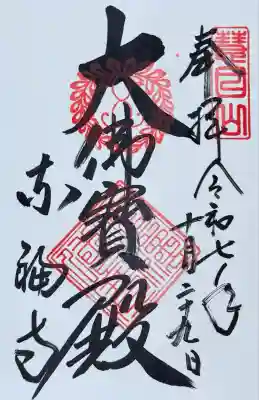 慧日山
奉拝 令和七年十月二十九日
大佛寶殿
東福寺